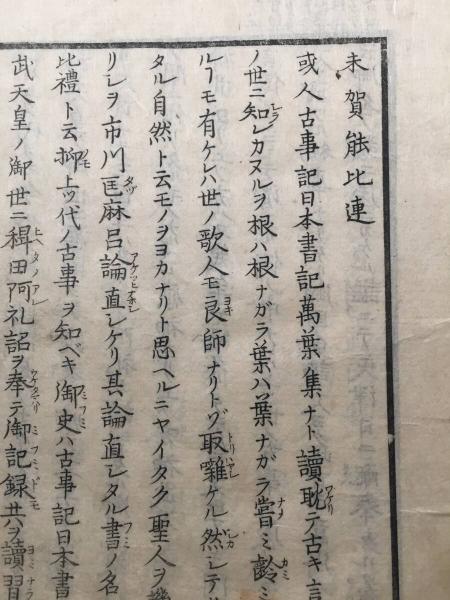 末賀能比連
或人古事記日本書記萬葉集ナト讀耽テ古キ言
ノ世ニ知レカヌルヲ根ハ根ナガラ葉ハ葉ナガラ嘗ミ齡ミ
ルヿモ有ケレハ世ノ歌人モ良師ナリトヅ取囃ケル然シテ
タル自然ト云モノヲヨカナリト思ヘルニヤイタク聖人ヲ
リシヲ市川匡麻呂論直シケリ其論直シタル書ノ名
比禮ト云抑上ツ代ノ古事ヲ知ベキ御史ハ古事記日本書
武天皇ノ御世ニ稗田阿礼詔ヲ奉テ御記録共ヲ讀習